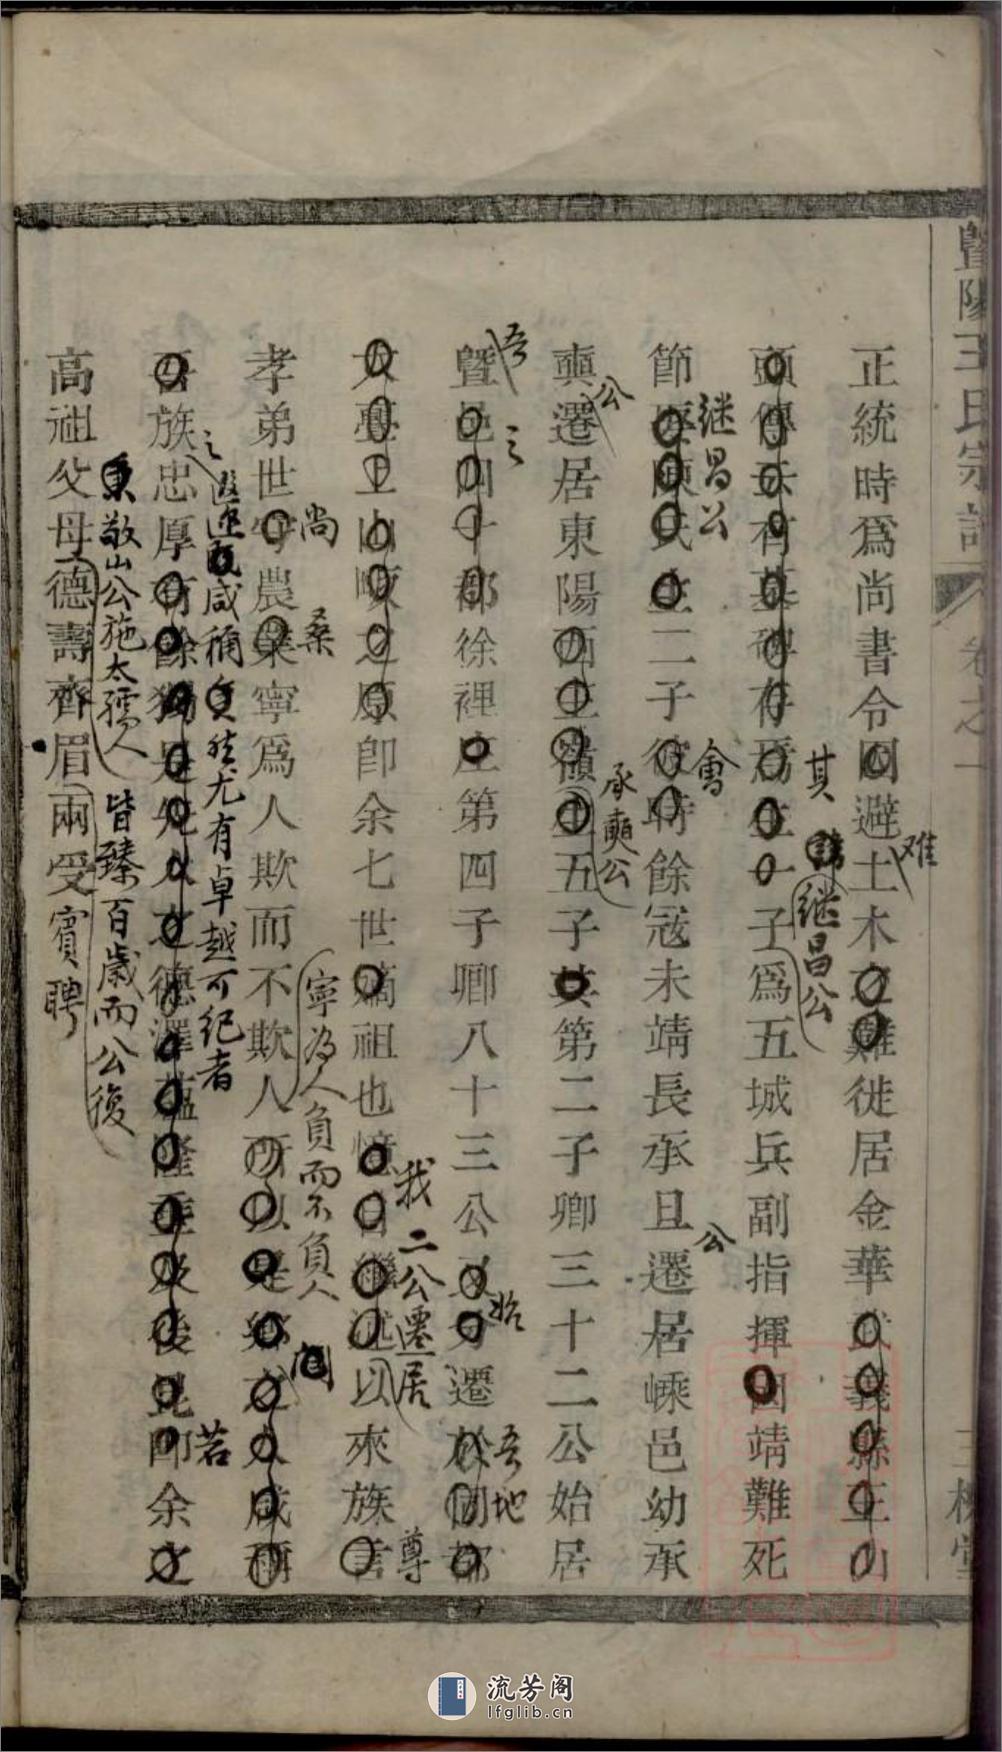 暨陽王氏宗譜
卷之一
三槐堂
正統時爲尚書令因避土木之難徙居金華武義縣王山
难
頭傳云有墓碑存焉生一子爲五城兵副指揮因靖難死
其
諱继昌公
節娶陳氏生二子彼時餘冦未靖長承且遷居嵊邑幼承
继昌公
會
公
奭遷居東陽西王嶺生五子其第二子卿三十二公始居
公
承奭公
暨邑四十都徐裡庄第四子卿八十三公又分遷於同都
吾
之
始
吾地
大臺上山畈之原卽余七世嫡祖也憶自繼述以來族言
我二公遷居
尊
孝弟世守農業寧爲人欺而不欺人所以是鄉之人咸稱
尚
桑
寧为人負而不負人
闾
吾族忠厚有餘獨是先人之德澤蘊隆垂及後昆卽余之
之
遐邇咸稱
然尤有卓越可纪者
若
高祖父母德壽齊眉兩受賓聘
敬山公施太孺人皆臻百歲而公後
流芳阁
lfglib.cn